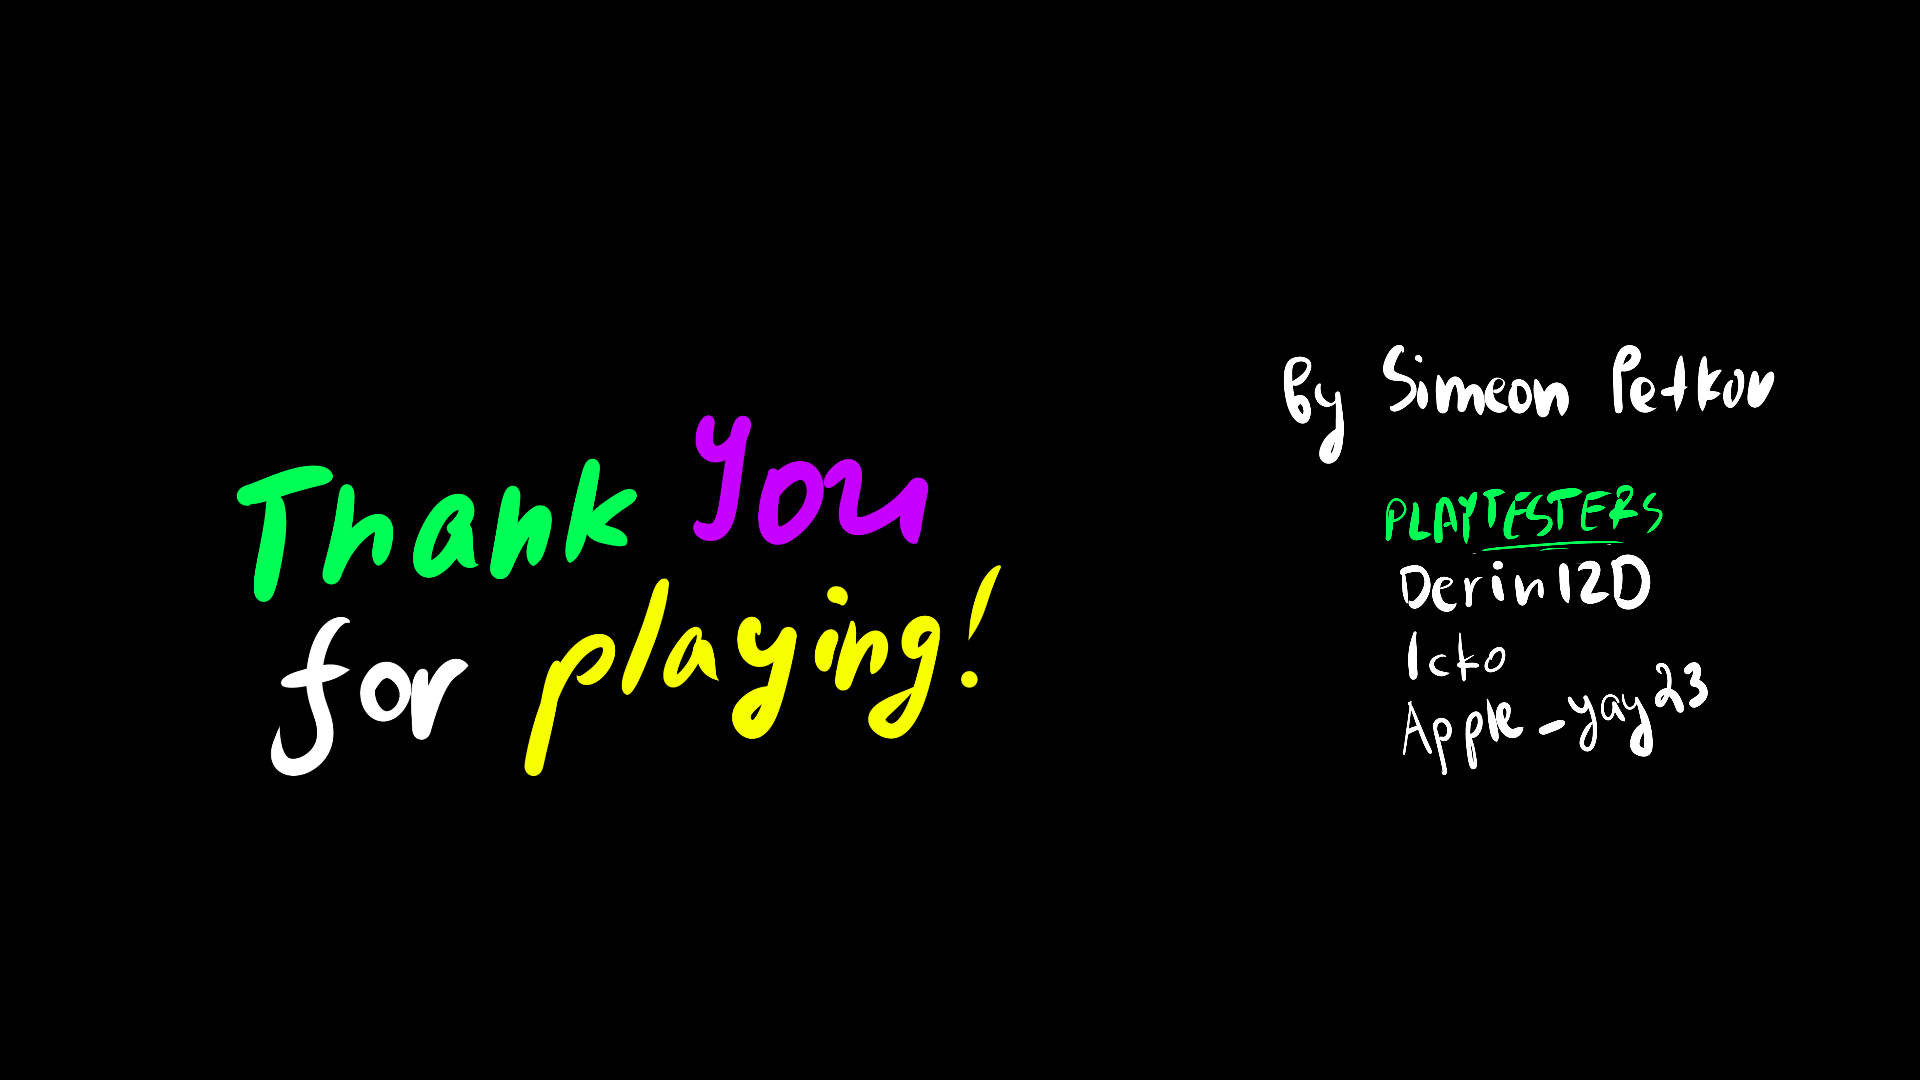 Thank You
for playing!
By Simeon Petkov
PLAYTESTERS
Derin12D
Icko
Apple_yay23